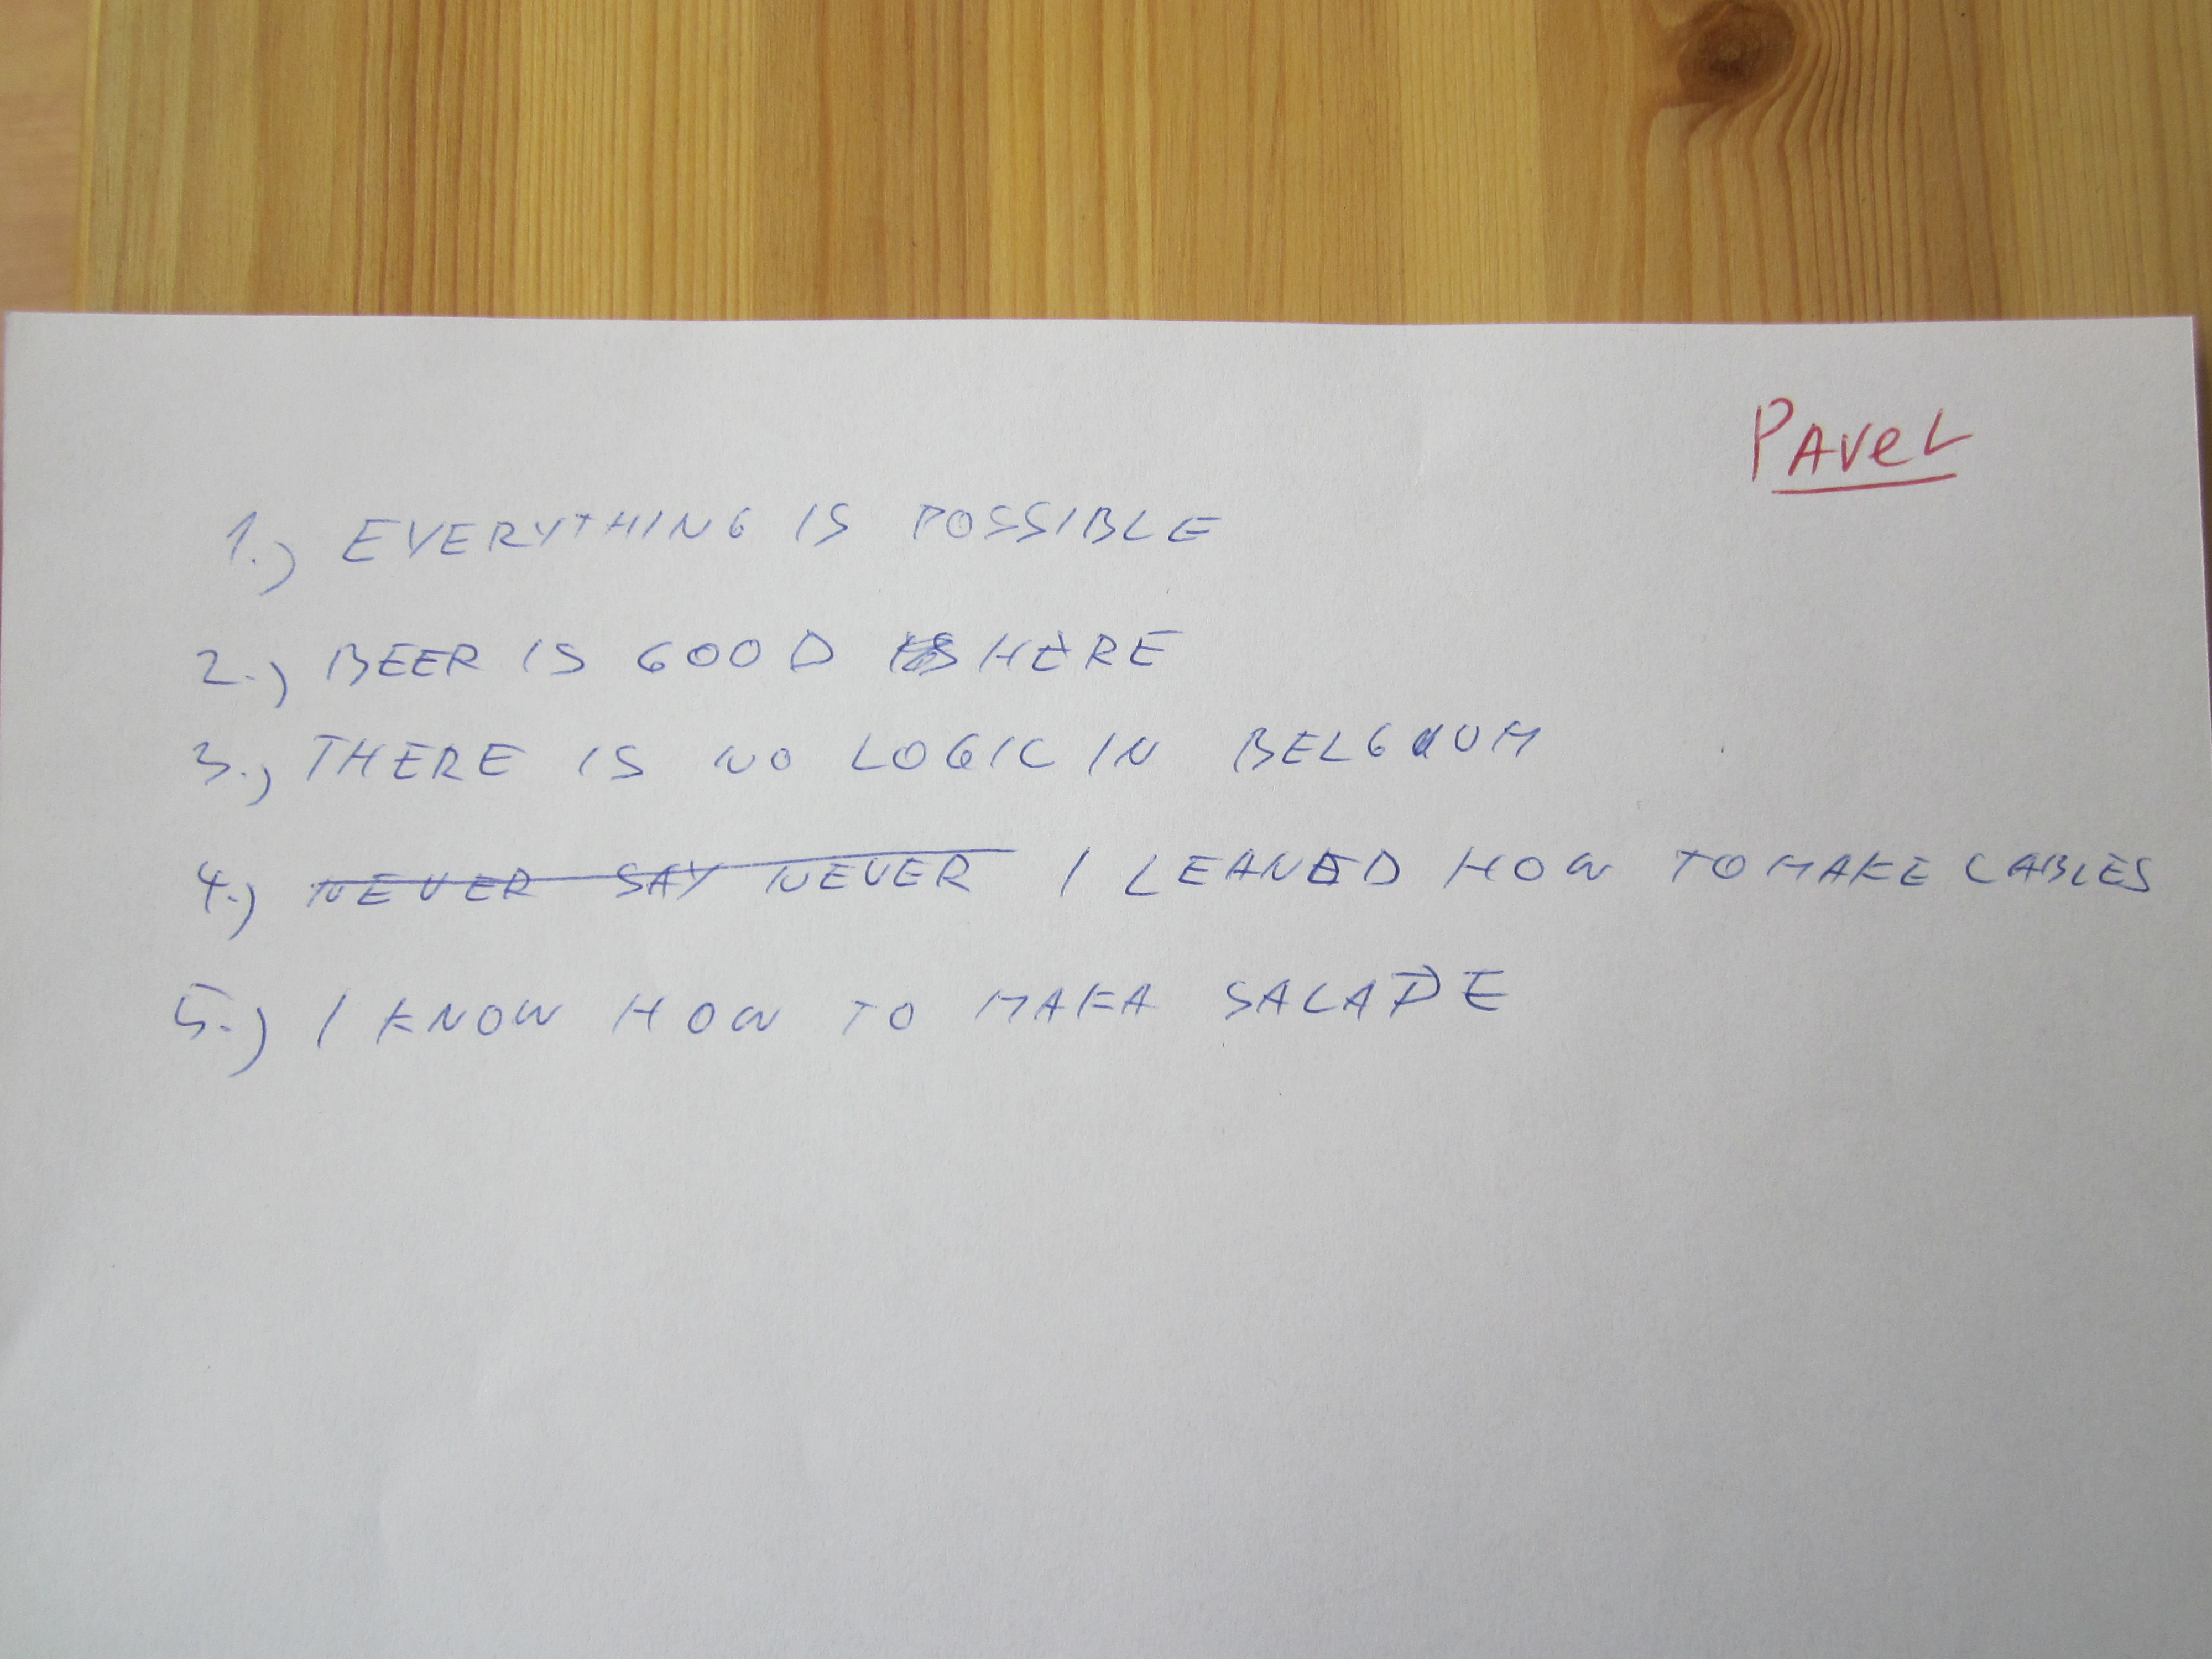 PAVEL
1.) EVERYTHING IS POSSIBLE
2.) BEER IS GOOD HERE
3.) THERE IS NO LOGIC IN BELGIUM
4.) NEVER SAY NEVER I LEANED HOW TO MAKE CABLES
5.) I KNOW HOW TO MAKA SALADE